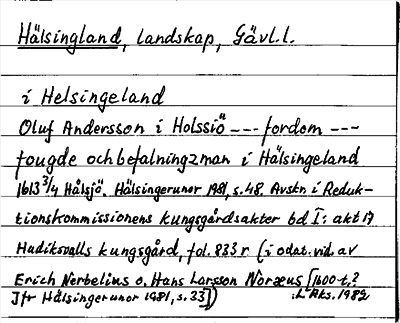 Hälsingland, landskap, Gävl.l.
i Helsingeland
Oluf Andersson i Holssiö --- fordom ---
fougde och befalningzman i Hälsingeland
1613 3/4 Hålsjö. Hälsingerunor 1981, s.48. Avskr. i Reduk-
tionskommissionens kungsgårdsakter bd I: akt 17
Hudiksvalls kungsgård, fol. 833 r (i odat. vid. av
Erich Nerbelius o. Hans Larsson Noræus [1600-t.?
Jfr Hälsingerunor 1981, s.33])
L Rks. 1982